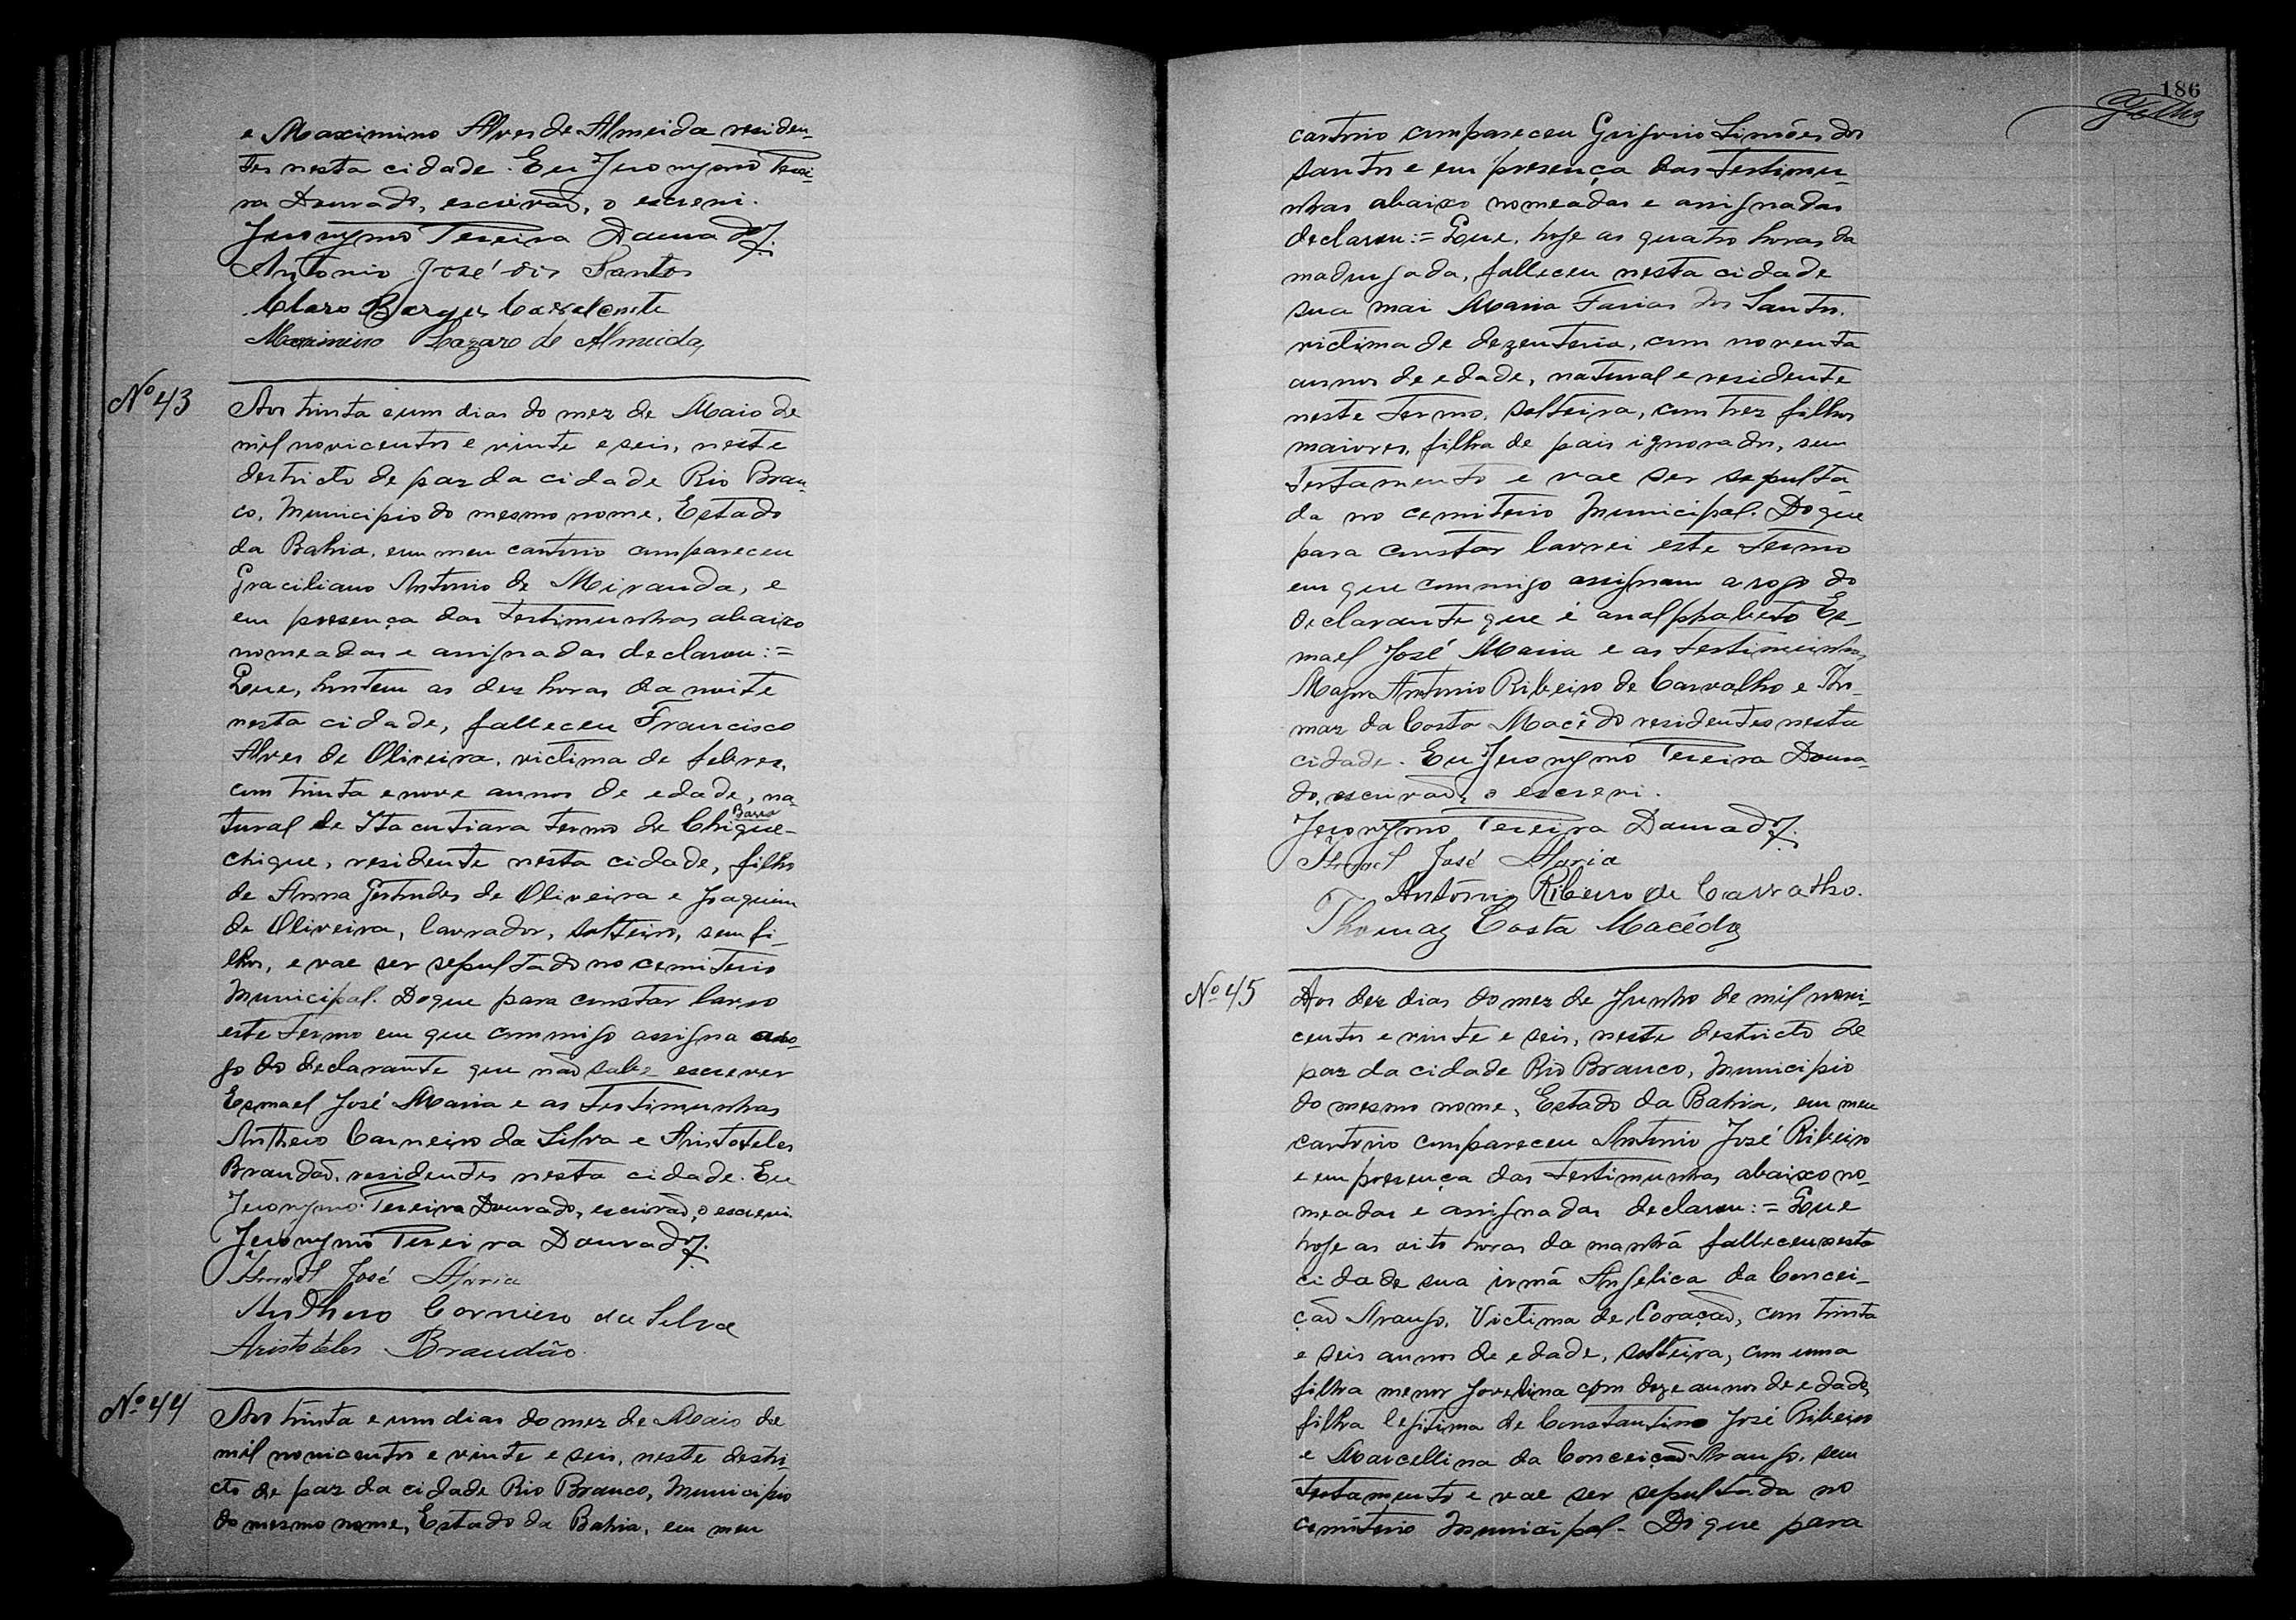 e Maximino Alves de Almeida residen-
tes nesta cidade. Eu Jeronymo Terei-
ra Dourado, escrivão, o escrevi.
Jeronymo Tereira Dourado
Antonio José dos Santos
Claro Borges Cavalcante
Maximino Lazaro de Almeida
Nº 43
Aos trinta e um dias do mez de Maio de
mil novicentos e vinte e seis, neste
destricto de paz da cidade Rio Bran-
co, Municipio do mesmo nome, Estado
da Bahia, em meu cartorio compareceu
Graciliano Antonio de Miranda, e
em presença das testimunhas abaixo
nomeadas e assignadas declarou:=
Que, hontem as dez horas da noite
nesta cidade, falleceu Francisco
Alves de Oliveira, victima de febres,
com trinta e nove annos de edade, na-
Barra
tural de Itacutiara termo de Chique-
chique, residente nesta cidade, filho
de Anna Gertrudes de Oliveira e Joaquim
de Oliveira, lavrador, solteiro, sem fi-
lhos, e vae ser sepultado no cemiterio
Municipal. Do que para constar lavro
este termo em que commigo assigna a ro-
go do declarante que não sabe escrever
Esmael José Maria e as testimunhas
Anthero Carneiro da Silva e Aristoteles
Brandão, residentes nesta cidade. Eu
Jeronymo Tereira Dourado, escrivão, o escrevi.
Jeronymo Tereira Dourado
José Maria
Anthero Carneiro da Silva
Aristoteles Brandão
Nº 44
Aos trinta e um dias do mez de Maio de
mil novicentos e vinte e seis, neste destri-
cto de paz da cidade Rio Branco, Municipio
do mesmo nome, Estado da Bahia, em meu
186
cartorio compareceu Grigorio Simões dos
Santos e em presença das testimu-
nhas abaixo nomeadas e assignadas
declarou:= Que, hoje as quatro horas da
madrugada, falleceu nesta cidade
sua mai Maria Farias dos Santos,
victima de dezenteria, com noventa
annos de edade, natural e residente
neste termo, solteira, com trez filhos
maiores, filha de pais ignorados, sem
testamento e vae ser sepulta-
da no cemiterio Municipal. Do que
para constar lavrei este termo
em que commigo assignam a rogo do
declarante que é analphabeto Es-
mael José Maria e as testimunhas
Major Antonio Ribeiro de Carvalho e Tho-
maz da Costa Macêdo residentes nesta
cidade. Eu Jeronymo Tereira Doura-
do, escrivão, o escrevi.
Jeronymo Tereira Dourado
José Maria
Antônio Ribeiro de Carvalho.
Thomaz Costa Macêdo
Nº 45
Aos dez dias do mez de Junho de mil novi-
centos e vinte e seis, neste destricto de
paz da cidade Rio Branco, Municipio
do mesmo nome, Estado da Bahia, em meu
cartorio compareceu Antonio José Ribeiro
e em presença das testimunhas abaixo no-
meadas e assignadas declarou:= Que
hoje as oito horas da manhã falleceu nesta
cidade sua irmã Angelica da Concei-
ção Araujo, Victima de Coração, com trinta
e seis annos de edade, solteira, com uma
filha menor Jovelina com doze annos de edade,
filha legitima de Constantino José Ribeiro
e Marcellina da Conceição Araujo, sem
testamento e vae ser sepultada no
cemiterio Municipal. Do que para